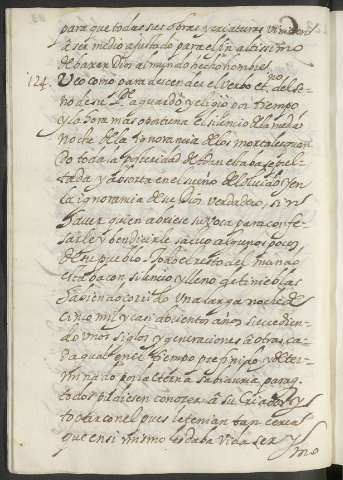 para que todas sus obras y criaturas viniesen
a ser medio ajustado para el fin altissimo
de baxar Dios al mundo hecho hombre
124. Veo como para descender el verbo et.no del se-
no de su P.e aguardó y eligió por tiempo
y la hora mas oportuna el silencio de la media
noche de la ignorancia de los mortales quan-
do toda la posteridad de Adan estaba sepul-
tada y absorta en el sueño del olvido y en
la ignorancia de su Dios verdadero, sin
haver quien abriese su voca para confe-
sarle y bendecirle salvo algunos pocos
de su pueblo. todo el resto del mundo
estaba con silencio y lleno de tinieblas
habiendo corrido una larga noche de
cinco mil y casi docientos años sucedien-
do unos siglos y generaciones a otras, ca-
da qual en el tiempo prefinido y deter-
minado por la eterna sabiduria para q.
todos pudiesen conocer a su Criador y
toparcon el pues le tenian tan cerca
que en si mismo les daba vida ser y
mo